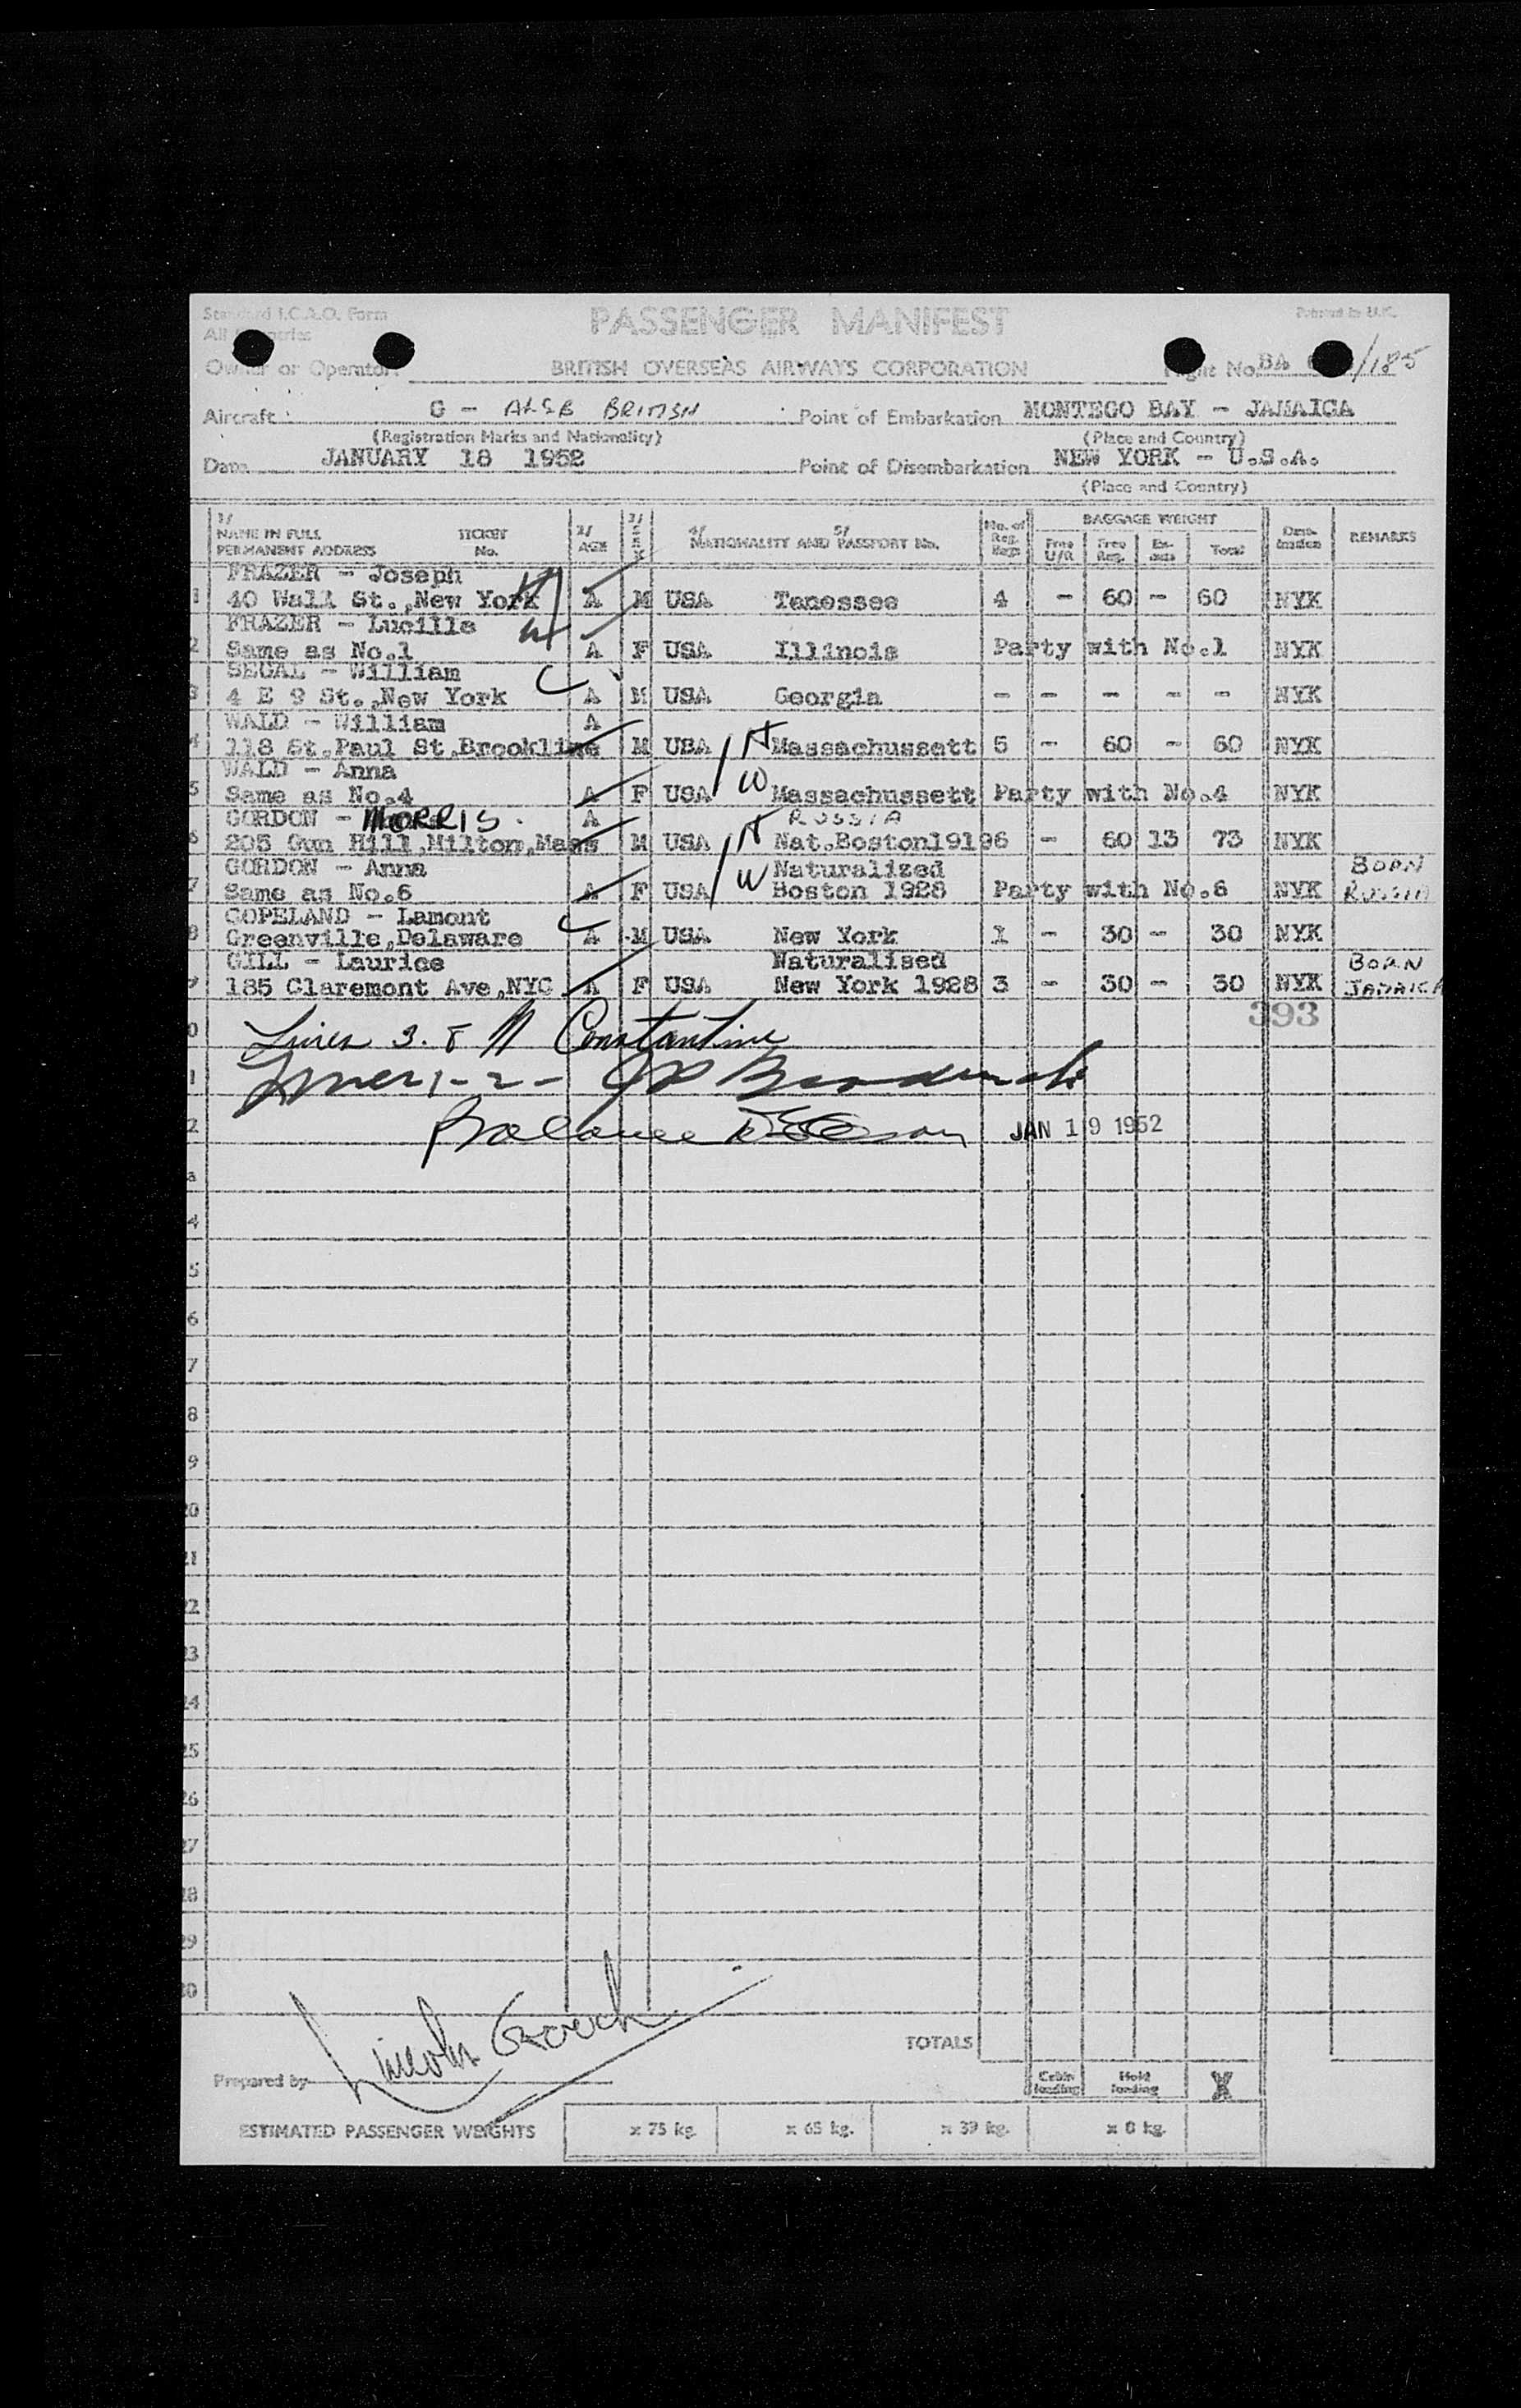 Standard I.C.A.O. Form PASSENGER MANIFEST Printed in U.K.
All
Owner or Operator BRITISH OVERSEAS AIRWAYS CORPORATION Flight No. BA /185
Aircraft G - ALSB BRITISH Point of Embarkation MONTEGO BAY - JAMAICA
(Registration Marks and Nationality) (Place and Country)
Date JANUARY 18 1952 Point of Disembarkation NEW YORK - U.S.A.
(Place and Country)
1/ NAME IN FULL PERMANENT ADDRESS TICKET No. 2/ AGE 3/ SEX 4/ NATIONALITY AND 5/ PASSPORT No. No. of Reg. Bags BAGGAGE WEIGHT Free U/R Free Reg. Ex- cess Total Dest- ination REMARKS
FRAZER - Joseph H
1 40 Wall St.,New York A M USA Tenessee 4 - 60 - 60 NYK
FRAZER - Lucille W
2 Same as No.1 A F USA Illinois Party with No.1 NYK
SEGAL - William C
3 4 E 9 St.,New York A M USA Georgia - - - - - NYK
WALD - William A
4 118 St.Paul St.Brookline M USA H Massachussett 5 - 60 - 60 NYK
WALD - Anna
5 Same as No.4 A F USA W Massachussett Party with No.4 NYK
GORDON - MORRIS. A RUSSIA
6 205 Gun Hill,Milton,Mass M USA H Nat.Boston1919 6 - 60 13 73 NYK
GORDON - Anna Naturalized BORN
7 Same as No.6 A F USA W Boston 1928 Party with No.6 NYK RUSSIA
COPELAND - Lamont C
8 Greenville,Delaware A M USA New York 1 - 30 - 30 NYK
GILL - Laurice Naturalised BORN
9 185 Claremont Ave,NYC A F USA New York 1928 3 - 30 - 30 NYK JAMAICA
393
0 Lines 3. 8 M Constantine
1 Lines 1-2-
2 Balance JAN 19 1952
3
4
5
6
7
8
9
20
21
22
23
24
25
26
27
28
29
30
TOTALS
Prepared by Lincoln Gooch
Cabin loading Hold loading
ESTIMATED PASSENGER WEIGHTS x 75 kg. x 65 kg. x 39 kg. x 8 kg.